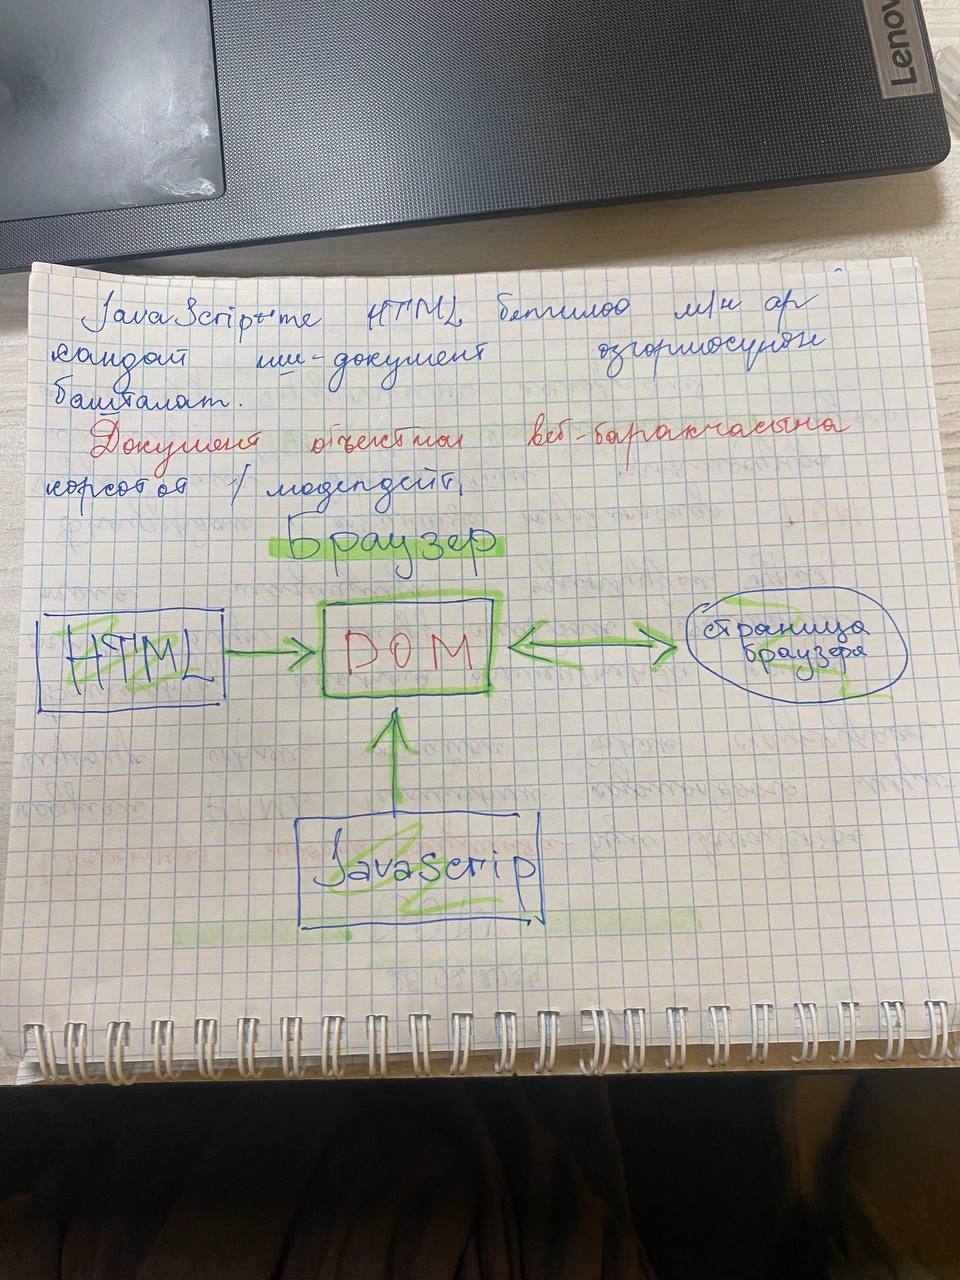 Lenov
JavaScript'те HTML бетилоо м/н ар
кандай иш-документ озгормосунон
башталат.
Документ объектиси веб-баракчасына
корсотот / моделдейт,
Браузер
HTML
DOM
страница
браузера
Javascrip